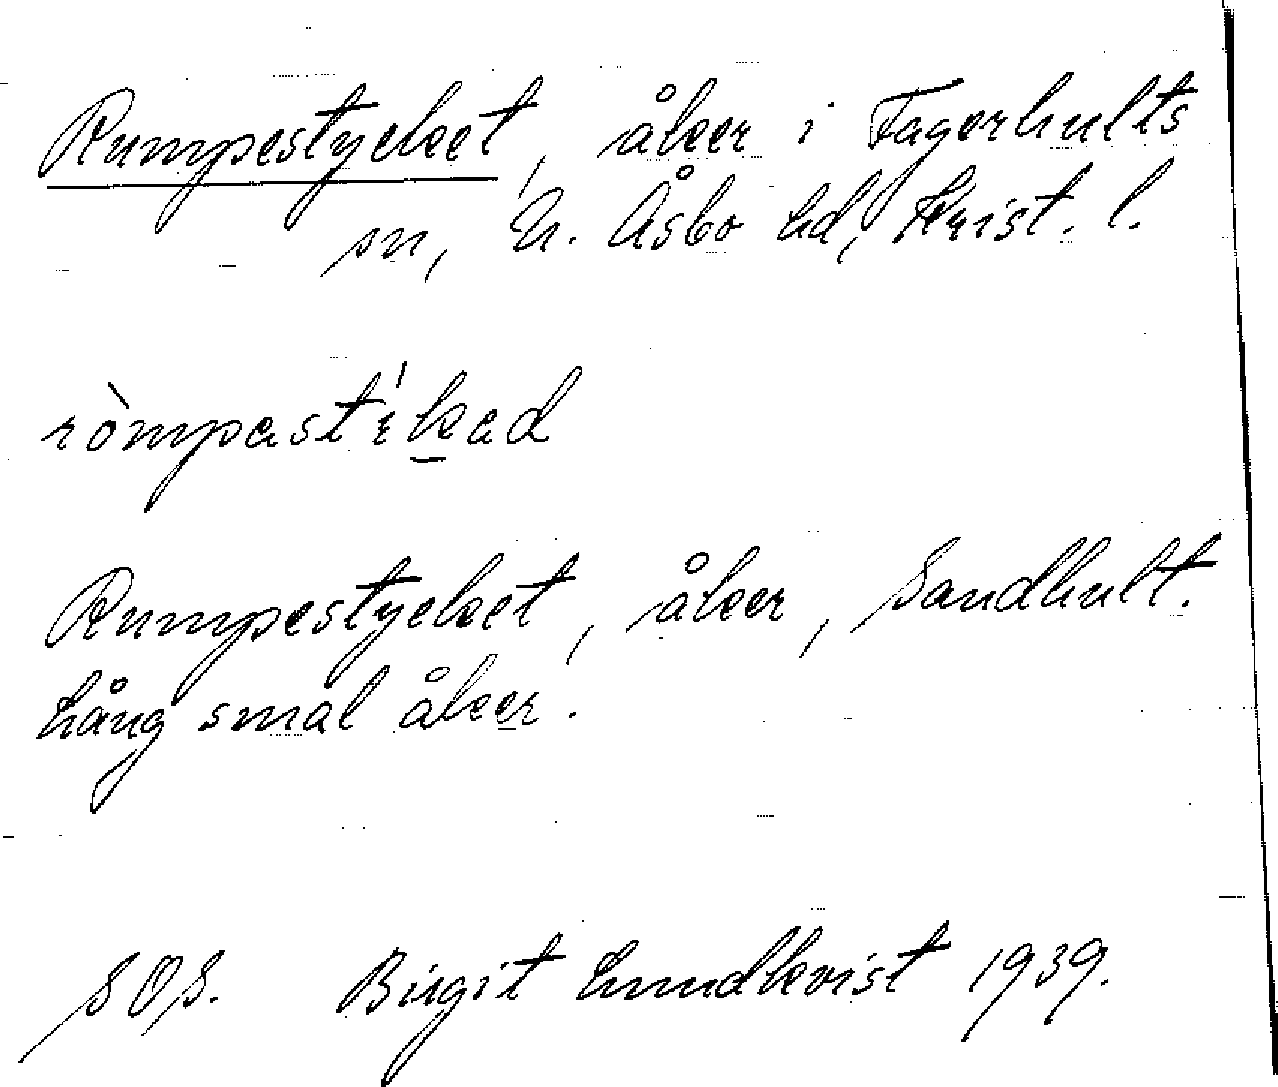 Rumpestycket, åker i Fagerhults
sn, N. Åsbo hd, Krist. l.
Rumpestycket, åker, Sandhult.
Lång smal åker.
SOS. Birgit Lundkvist 1939.